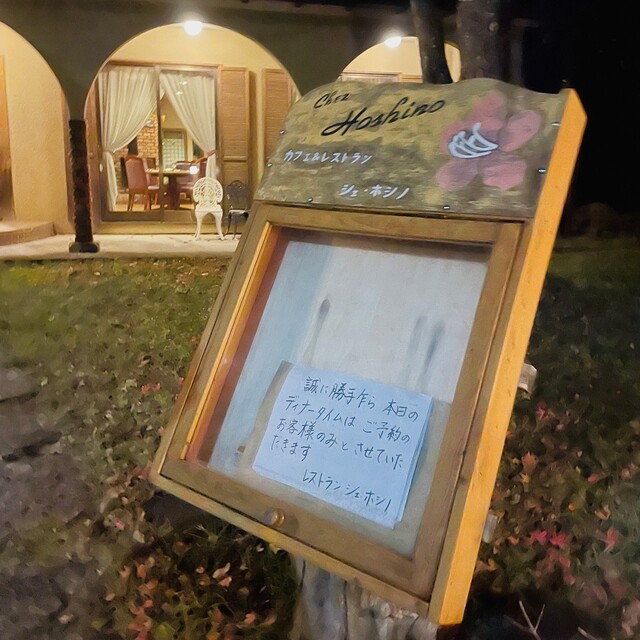 Chez
Hoshino
カフェ&レストラン
シェ・ホシノ
誠に勝手乍ら 本日の
ディナータイムは ご予約の
お客様のみとさせていた
だきます
レストランシェホシノ